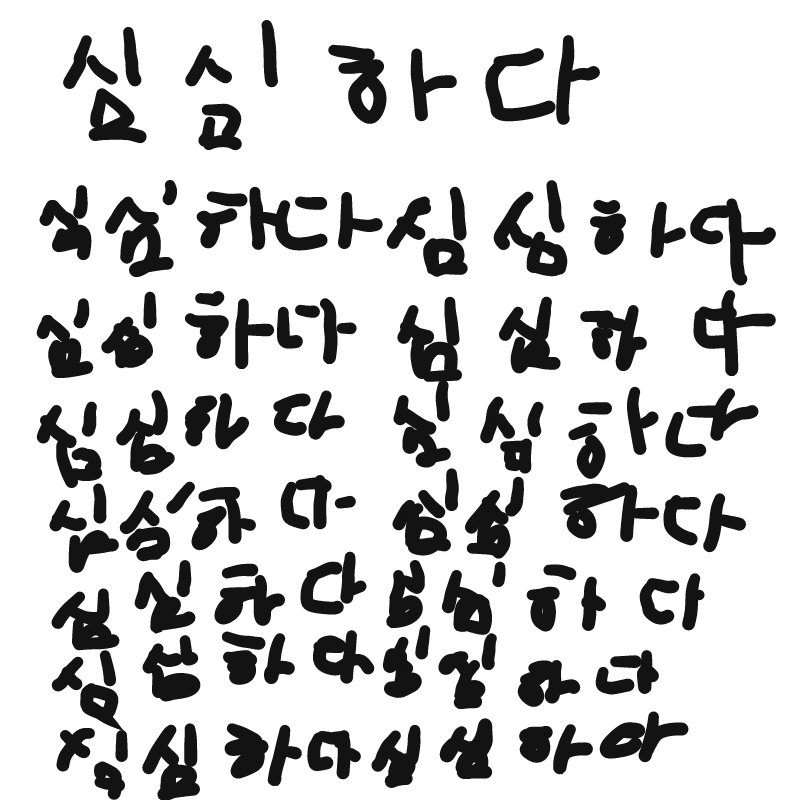 심심하다
심심하다심심하다
심심하다 심심하다
심심하다 심심하다
심심하다 심심하다
심심하다 심심하다
심심하다심심하다
심심하다심심하다